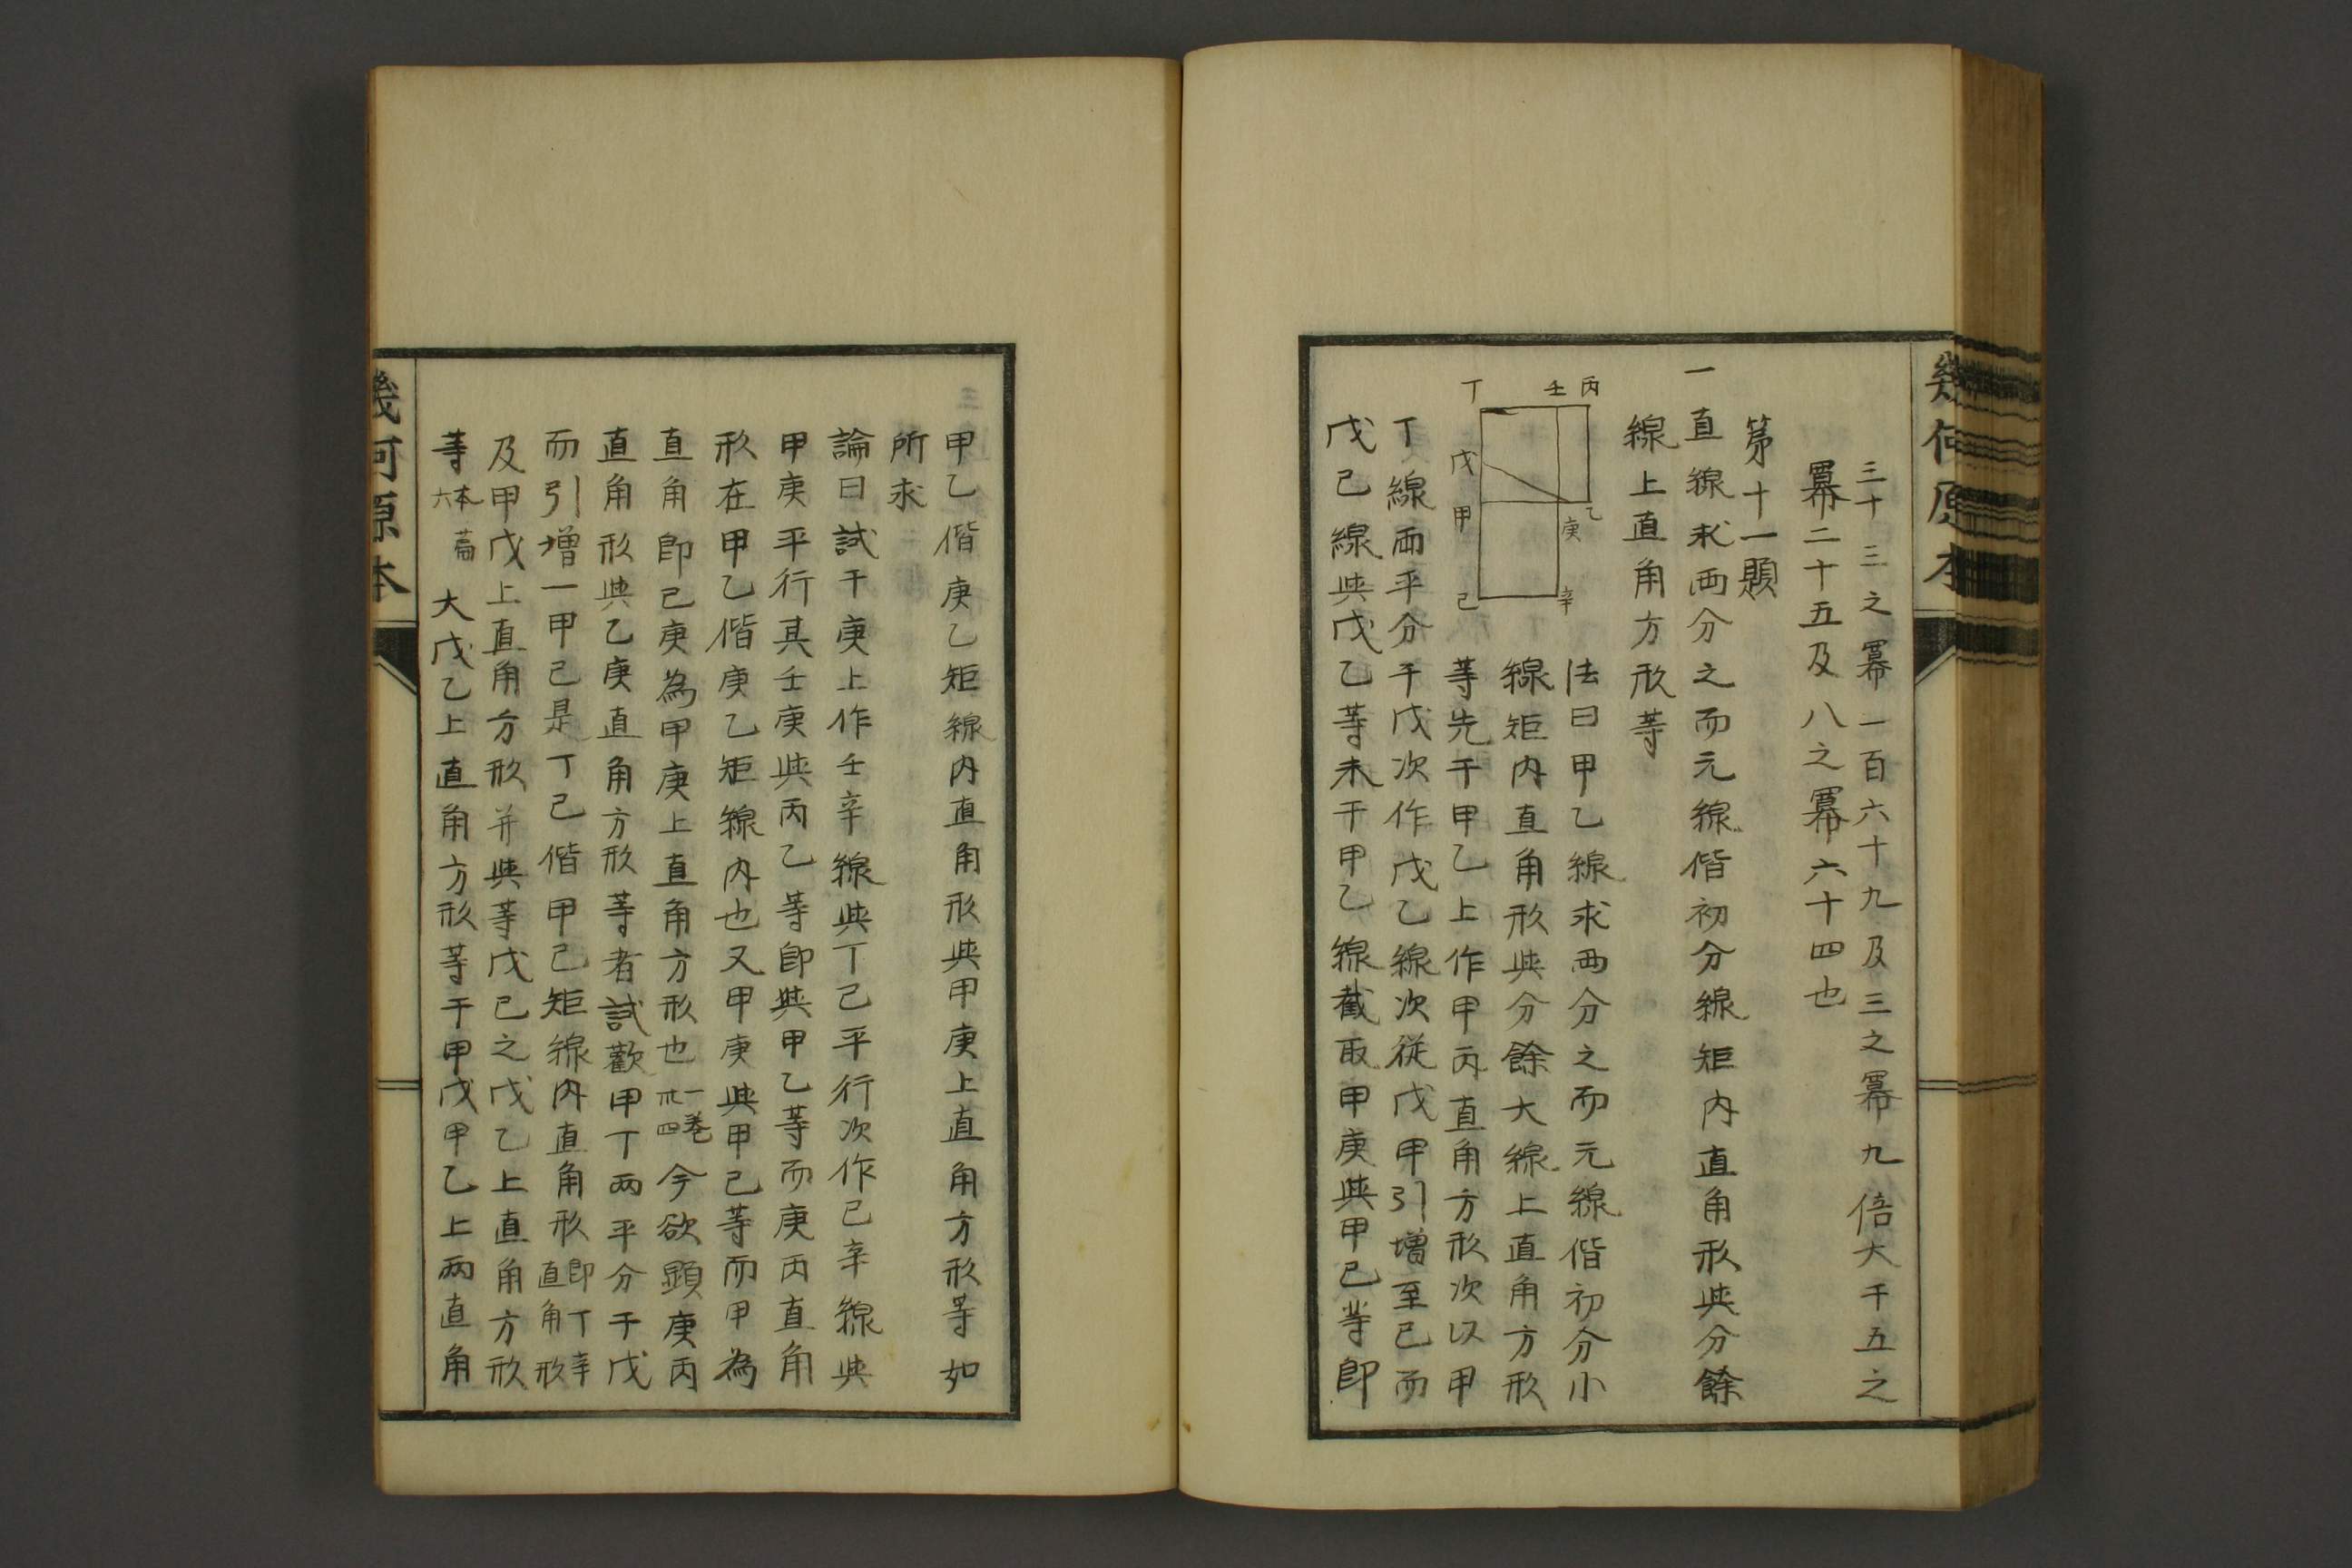 幾何原本
三十三之冪一百六十九及三之冪九倍大于五之
冪二十五及八之冪六十四也
第十一題
一直線求兩分之而元線偕初分線矩内直角形與分餘
線上直角方形等
丁 壬 丙
戊 甲 乙 庚
己 辛
法曰甲乙線求兩分之而元線偕初分小
線矩内直角形與分餘大線上直角方形
等先于甲乙上作甲丙直角方形次以甲
丁線兩平分于戊次作戊乙線次從戊甲引增至己而
戊己線與戊乙等末于甲乙線截取甲庚與甲己等即
甲乙偕庚乙矩線内直角形與甲庚上直角方形等如
所求
論曰試于庚上作壬辛線與丁己平行次作己辛線與
甲庚平行其壬庚與丙乙等即與甲乙等而庚丙直角
形在甲乙偕庚乙矩線内也又甲庚與甲己等而甲為
直角即己庚為甲庚上直角方形也一卷卅四今欲顯庚丙
直角形與乙庚直角方形等者試歡甲丁兩平分于戊
而引增一甲己是丁己偕甲己矩線内直角形即丁辛直角形
及甲戊上直角方形并與等戊己之戊乙上直角方形
等本篇六大戊乙上直角方形等于甲戊甲乙上兩直角
幾何原本